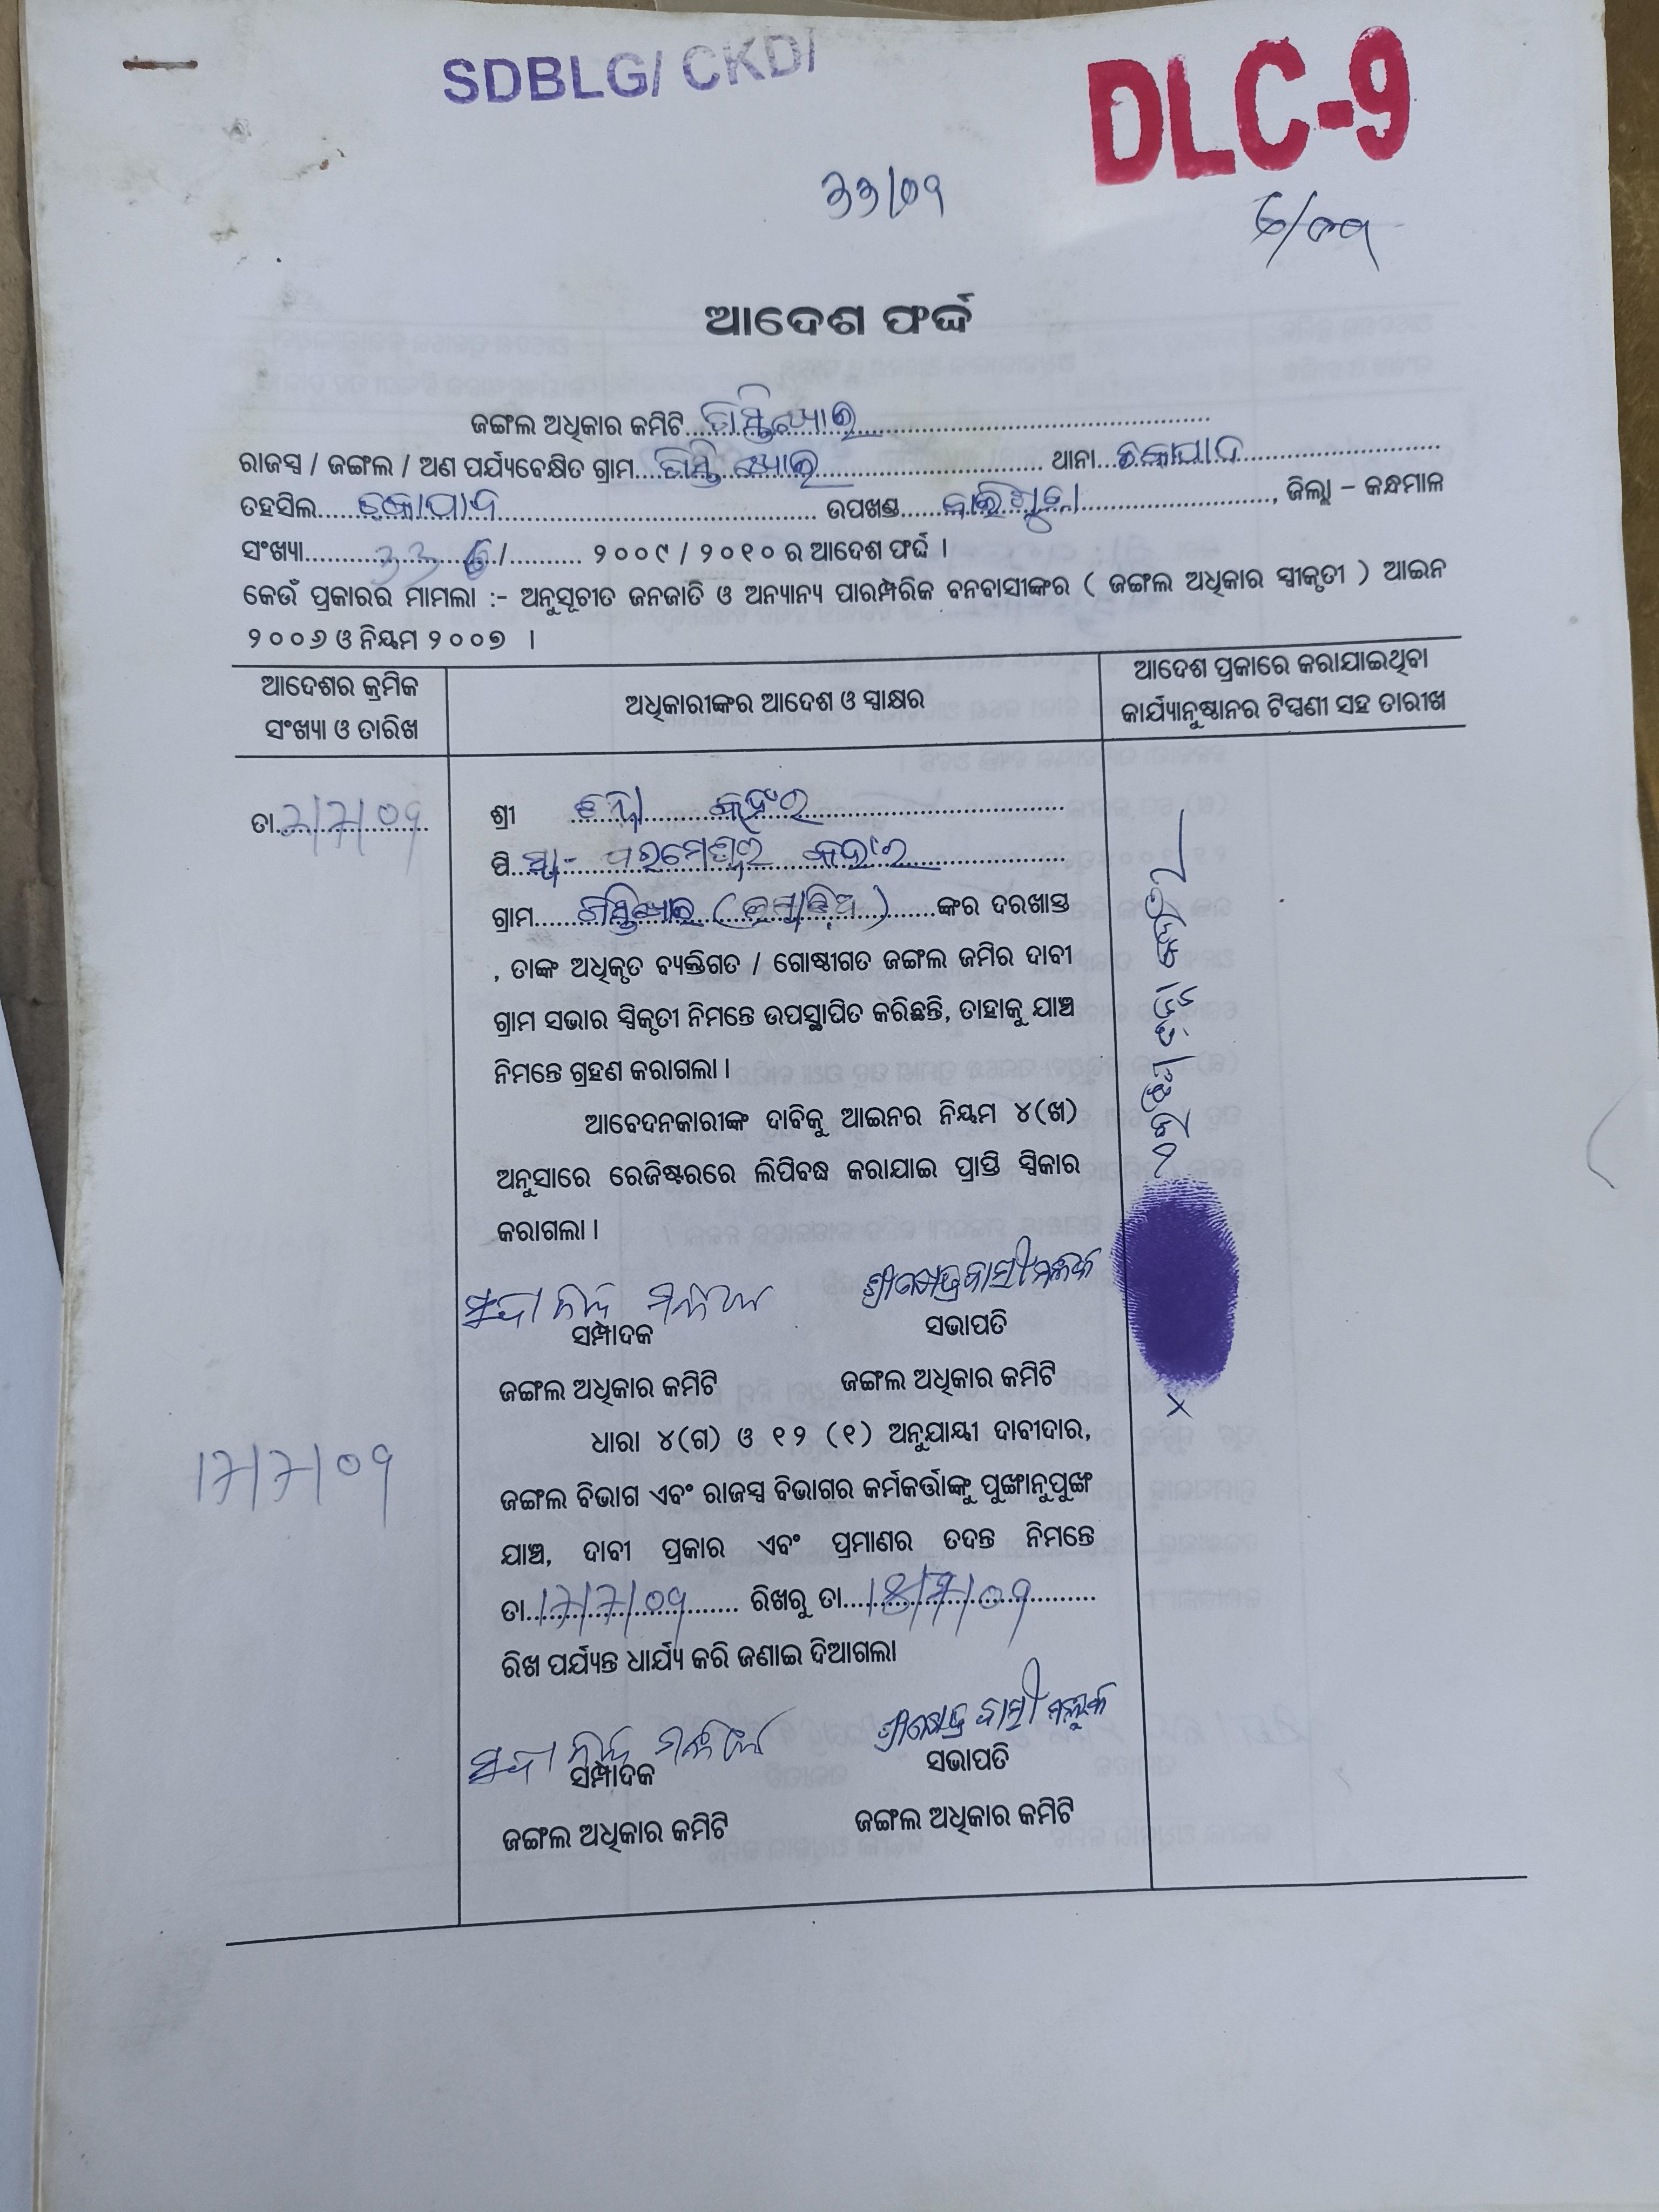 SDBLG/ CKD/
DLC-9
୬/୦୯
ଆଦେଶ ଫର୍ଦ୍ଦ
ଜଙ୍ଗଲ ଅଧିକାର କମିଟି
ରାଜସ୍ୱ / ଜଙ୍ଗଲ / ଅଣ ପର୍ଯ୍ୟବେକ୍ଷିତ ଗ୍ରାମ ଥାନା ଚକାପାଦ
ତହସିଲ ଚକାପାଦ ଉପଖଣ୍ଡ ବାଲିଗୁଡ଼ା, ଜିଲ୍ଲା – କନ୍ଧମାଳ
ସଂଖ୍ୟା / ୨୦୦୯ / ୨୦୧୦ ର ଆଦେଶ ଫର୍ଦ୍ଦ ।
କେଉଁ ପ୍ରକାରର ମାମଲା :- ଅନୁସୂଚୀତ ଜନଜାତି ଓ ଅନ୍ୟାନ୍ୟ ପାରମ୍ପରିକ ବନବାସୀଙ୍କର ( ଜଙ୍ଗଲ ଅଧିକାର ସ୍ୱୀକୃତୀ ) ଆଇନ
୨୦୦୬ ଓ ନିୟମ ୨୦୦୭ ।
ଆଦେଶର କ୍ରମିକ
ସଂଖ୍ୟା ଓ ତାରିଖ
ଅଧିକାରୀଙ୍କର ଆଦେଶ ଓ ସ୍ୱାକ୍ଷର
ଆଦେଶ ପ୍ରକାରେ କରାଯାଇଥିବା
କାର୍ଯ୍ୟାନୁଷ୍ଠାନର ଟିପ୍ପଣୀ ସହ ତାରୀଖ
ତା
ଶ୍ରୀ କହଁର
ପି ସ୍ୱା- ପରମେଶ୍ୱର କହଁର
ଗ୍ରାମ ଙ୍କର ଦରଖାସ୍ତ
, ତାଙ୍କ ଅଧିକୃତ ବ୍ୟକ୍ତିଗତ / ଗୋଷ୍ଠୀଗତ ଜଙ୍ଗଲ ଜମିର ଦାବୀ
ଗ୍ରାମ ସଭାର ସ୍ୱିକୃତୀ ନିମନ୍ତେ ଉପସ୍ଥାପିତ କରିଛନ୍ତି, ତାହାକୁ ଯାଞ୍ଚ
ନିମନ୍ତେ ଗ୍ରହଣ କରାଗଲା ।
ଆବେଦନକାରୀଙ୍କ ଦାବିକୁ ଆଇନର ନିୟମ ୪(ଖ)
ଅନୁସାରେ ରେଜିଷ୍ଟରରେ ଲିପିବଦ୍ଧ କରାଯାଇ ପ୍ରାପ୍ତି ସ୍ୱିକାର
କରାଗଲା ।
ସମ୍ପାଦକ ସଭାପତି
ଜଙ୍ଗଲ ଅଧିକାର କମିଟି ଜଙ୍ଗଲ ଅଧିକାର କମିଟି
17/7/09
ଧାରା ୪(ଗ) ଓ ୧୨ (୧) ଅନୁଯାୟୀ ଦାବୀଦାର,
ଜଙ୍ଗଲ ବିଭାଗ ଏବଂ ରାଜସ୍ୱ ବିଭାଗର କର୍ମକର୍ତ୍ତାଙ୍କୁ ପୁଙ୍ଖାନୁପୁଙ୍ଖ
ଯାଞ୍ଚ, ଦାବୀ ପ୍ରକାର ଏବଂ ପ୍ରମାଣର ତଦନ୍ତ ନିମନ୍ତେ
ତା 17/7/09 ରିଖରୁ ତା 18/7/09
ରିଖ ପର୍ଯ୍ୟନ୍ତ ଧାର୍ଯ୍ୟ କରି ଜଣାଇ ଦିଆଗଲା
ସମ୍ପାଦକ ସଭାପତି
ଜଙ୍ଗଲ ଅଧିକାର କମିଟି ଜଙ୍ଗଲ ଅଧିକାର କମିଟି